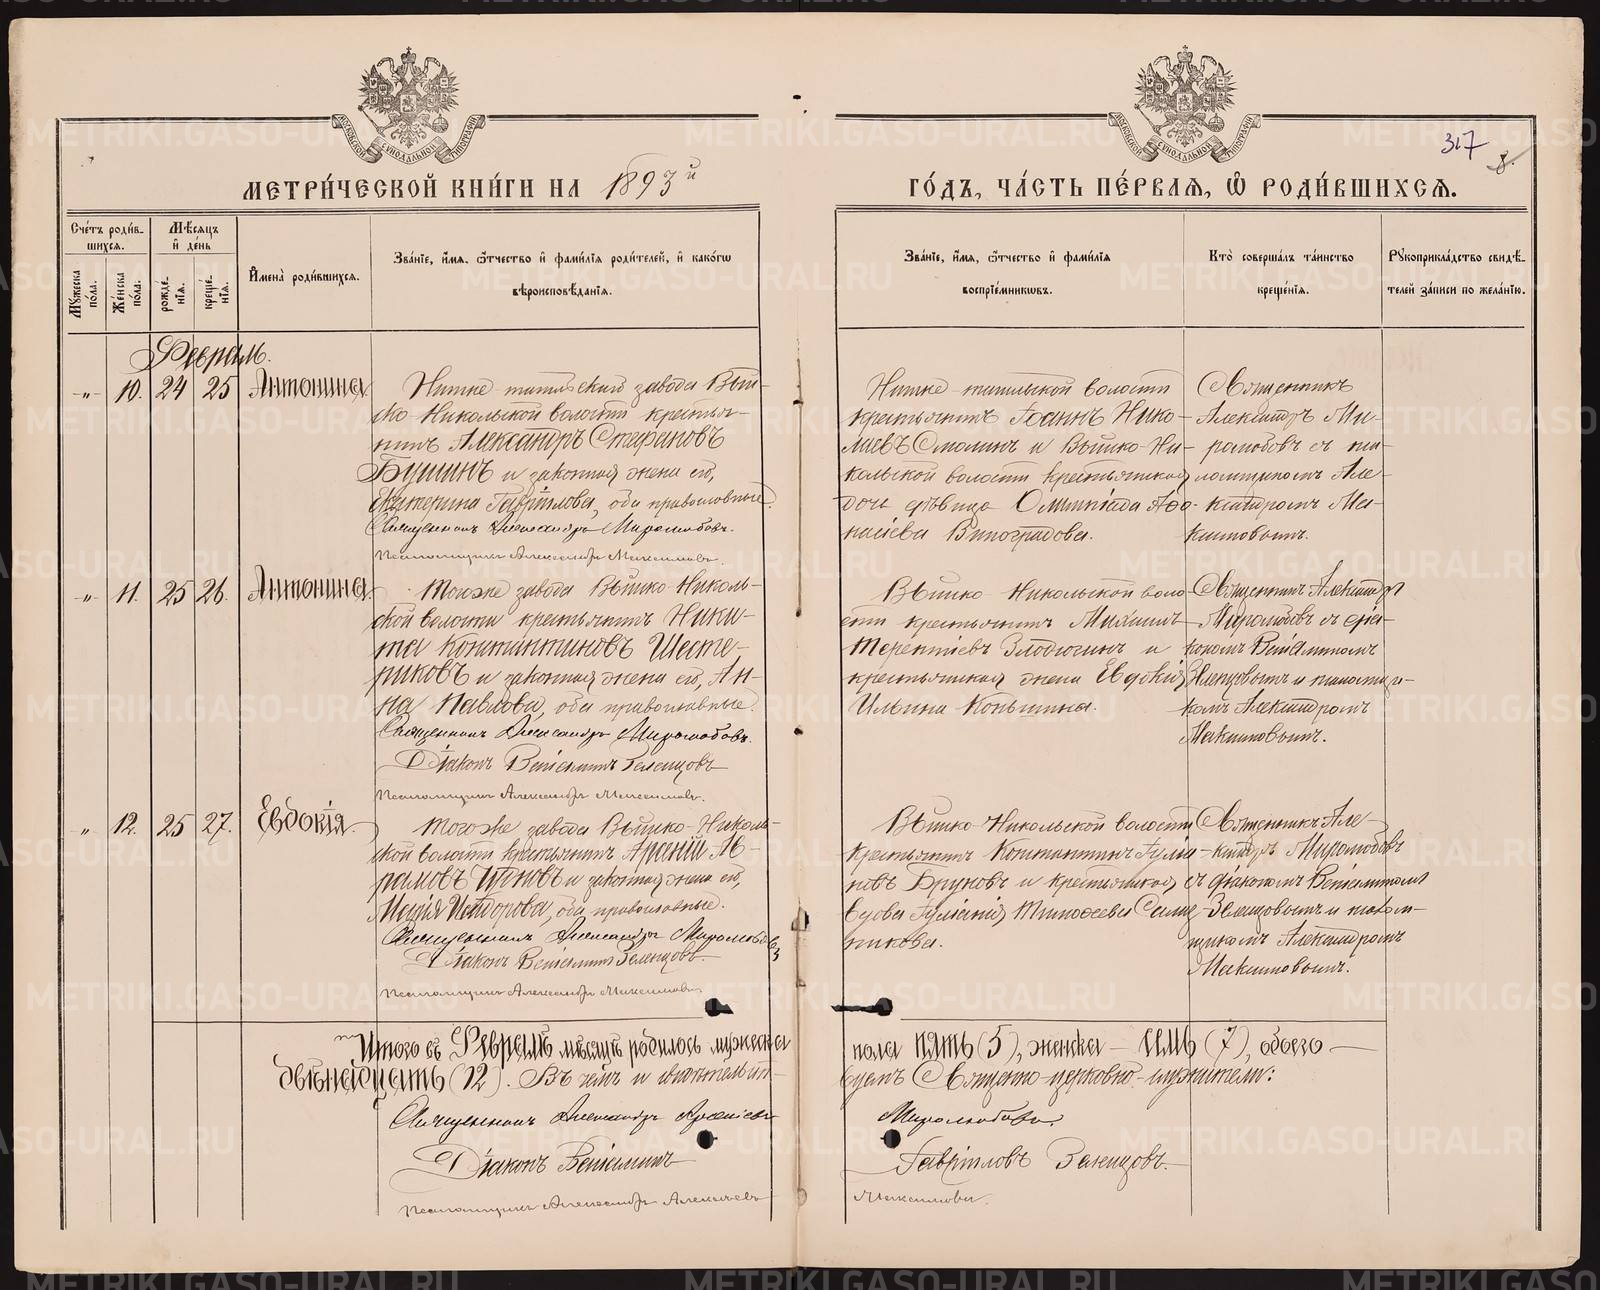 МЕТРИ́ЧЕСКОЙ КНИ́ГИ НА 1893й
ГО́ДЪ, ЧА́СТЬ ПЕ́РВАЯ, Ѽ РОДИ́ВШИХСЯ.
317
8.
МОСКОВСКОЙ СѴНОДАЛЬНОЙ ТИПОГРАФІИ
МОСКОВСКОЙ СѴНОДАЛЬНОЙ ТИПОГРАФІИ
Сче́тъ роди́в-
шихся.
Мѣ́сяцъ
и҆ де́нь
Мꙋжеска по́ла.
Же́нска по́ла.
рожде-
нїѧ.
креще-
нїѧ.
И҆мена̀ роди́вшихся.
Зва́нїе, и҆́мя, ѻ҆́тчество и҆ фами́лїя роди́телей, и҆ како́гѡ
вѣроисповѣ́данїя.
Зва́нїе, и҆́мя, ѻ҆́тчество и҆ фами́лїя
воспрїе́мникѡвъ.
Кто̀ соверша́лъ та́инство
креще́нїя.
Рꙋкоприкла́дство свидѣ́-
телей за́писи по жела́нїю.
Февраль.
-"- 10. 24 25 Антонина
Нижне-тагильскаго завода Вый-
ско-Никольской волости крестья-
нинъ Александръ Стефановъ
и законная жена его,
Екатерина Гаврілова, оба православные.
Священникъ Александръ Миролюбовъ.
Псаломщикъ Александръ Максимовъ.
Нижне тагильской волости
крестьянинъ Іоаннъ Нико-
лаевъ Смолинъ и Выйско-Ни-
кольской волости крестьянская
дочь дѣвица Олимпіада Афа-
насіева Виноградова.
Священникъ
Александръ Ми-
ролюбовъ съ пса-
ломщикомъ Але-
ксандромъ Ма-
ксимовымъ.
-"- 11. 25 26. Антонина
Тогоже завода Выйско-Николь-
ской волости крестьянинъ Ники-
та Константиновъ Шесте-
риковъ и законная жена его, Ан-
на Павлова, оба православные.
Священникъ Александръ Миролюбовъ.
Діаконъ Веніаминъ Зеленцовъ
Псаломщикъ Александръ Максимовъ.
Выйско Никольской воло-
сти крестьянинъ Михаилъ
Терентіевъ Злодюгинъ и
крестьянская жена Евдокія
Ильина Коньшина.
Священникъ Александръ
Миролюбовъ съ діа-
кономъ Веніаминомъ
Зеленцовымъ и псаломщи-
комъ Александромъ
Максимовымъ.
" 12. 25 27. Евдокія
Тогоже завода Выйско-Николь-
ской волости крестьянинъ Арсеній Ав-
рамовъ и законная жена его,
Марія оба православные.
Священникъ Александръ Миролюбовъ
Діаконъ Веніаминъ Зеленцовъ.
Псаломщикъ Александръ Максимовъ
Выйско-Никольской волости
крестьянинъ Константинъ Іуліа-
новъ и крестьянская
вдова Іуліанія Тимофеева
никова.
Священникъ Але-
ксандръ Миролюбовъ
съ діакономъ Веніаминомъ
Зеленцовымъ и псалом-
щикомъ Александромъ
Максимовымъ.
Итого въ Февралѣ мѣсяцѣ родилось мужеска
пола пять (5), женска — семь (7), обоего —
двѣнадцать (12). Въ чемъ и свидѣтельст-
вуемъ Священно-церковно-служители:
Священникъ Александръ Арсеніевъ
Миролюбовъ.
Діаконъ Веніаминъ
Гавріловъ Зеленцовъ.
Псаломщикъ Александръ Алексѣевъ
Максимовъ.
METRIKI.GASO-URAL.RU